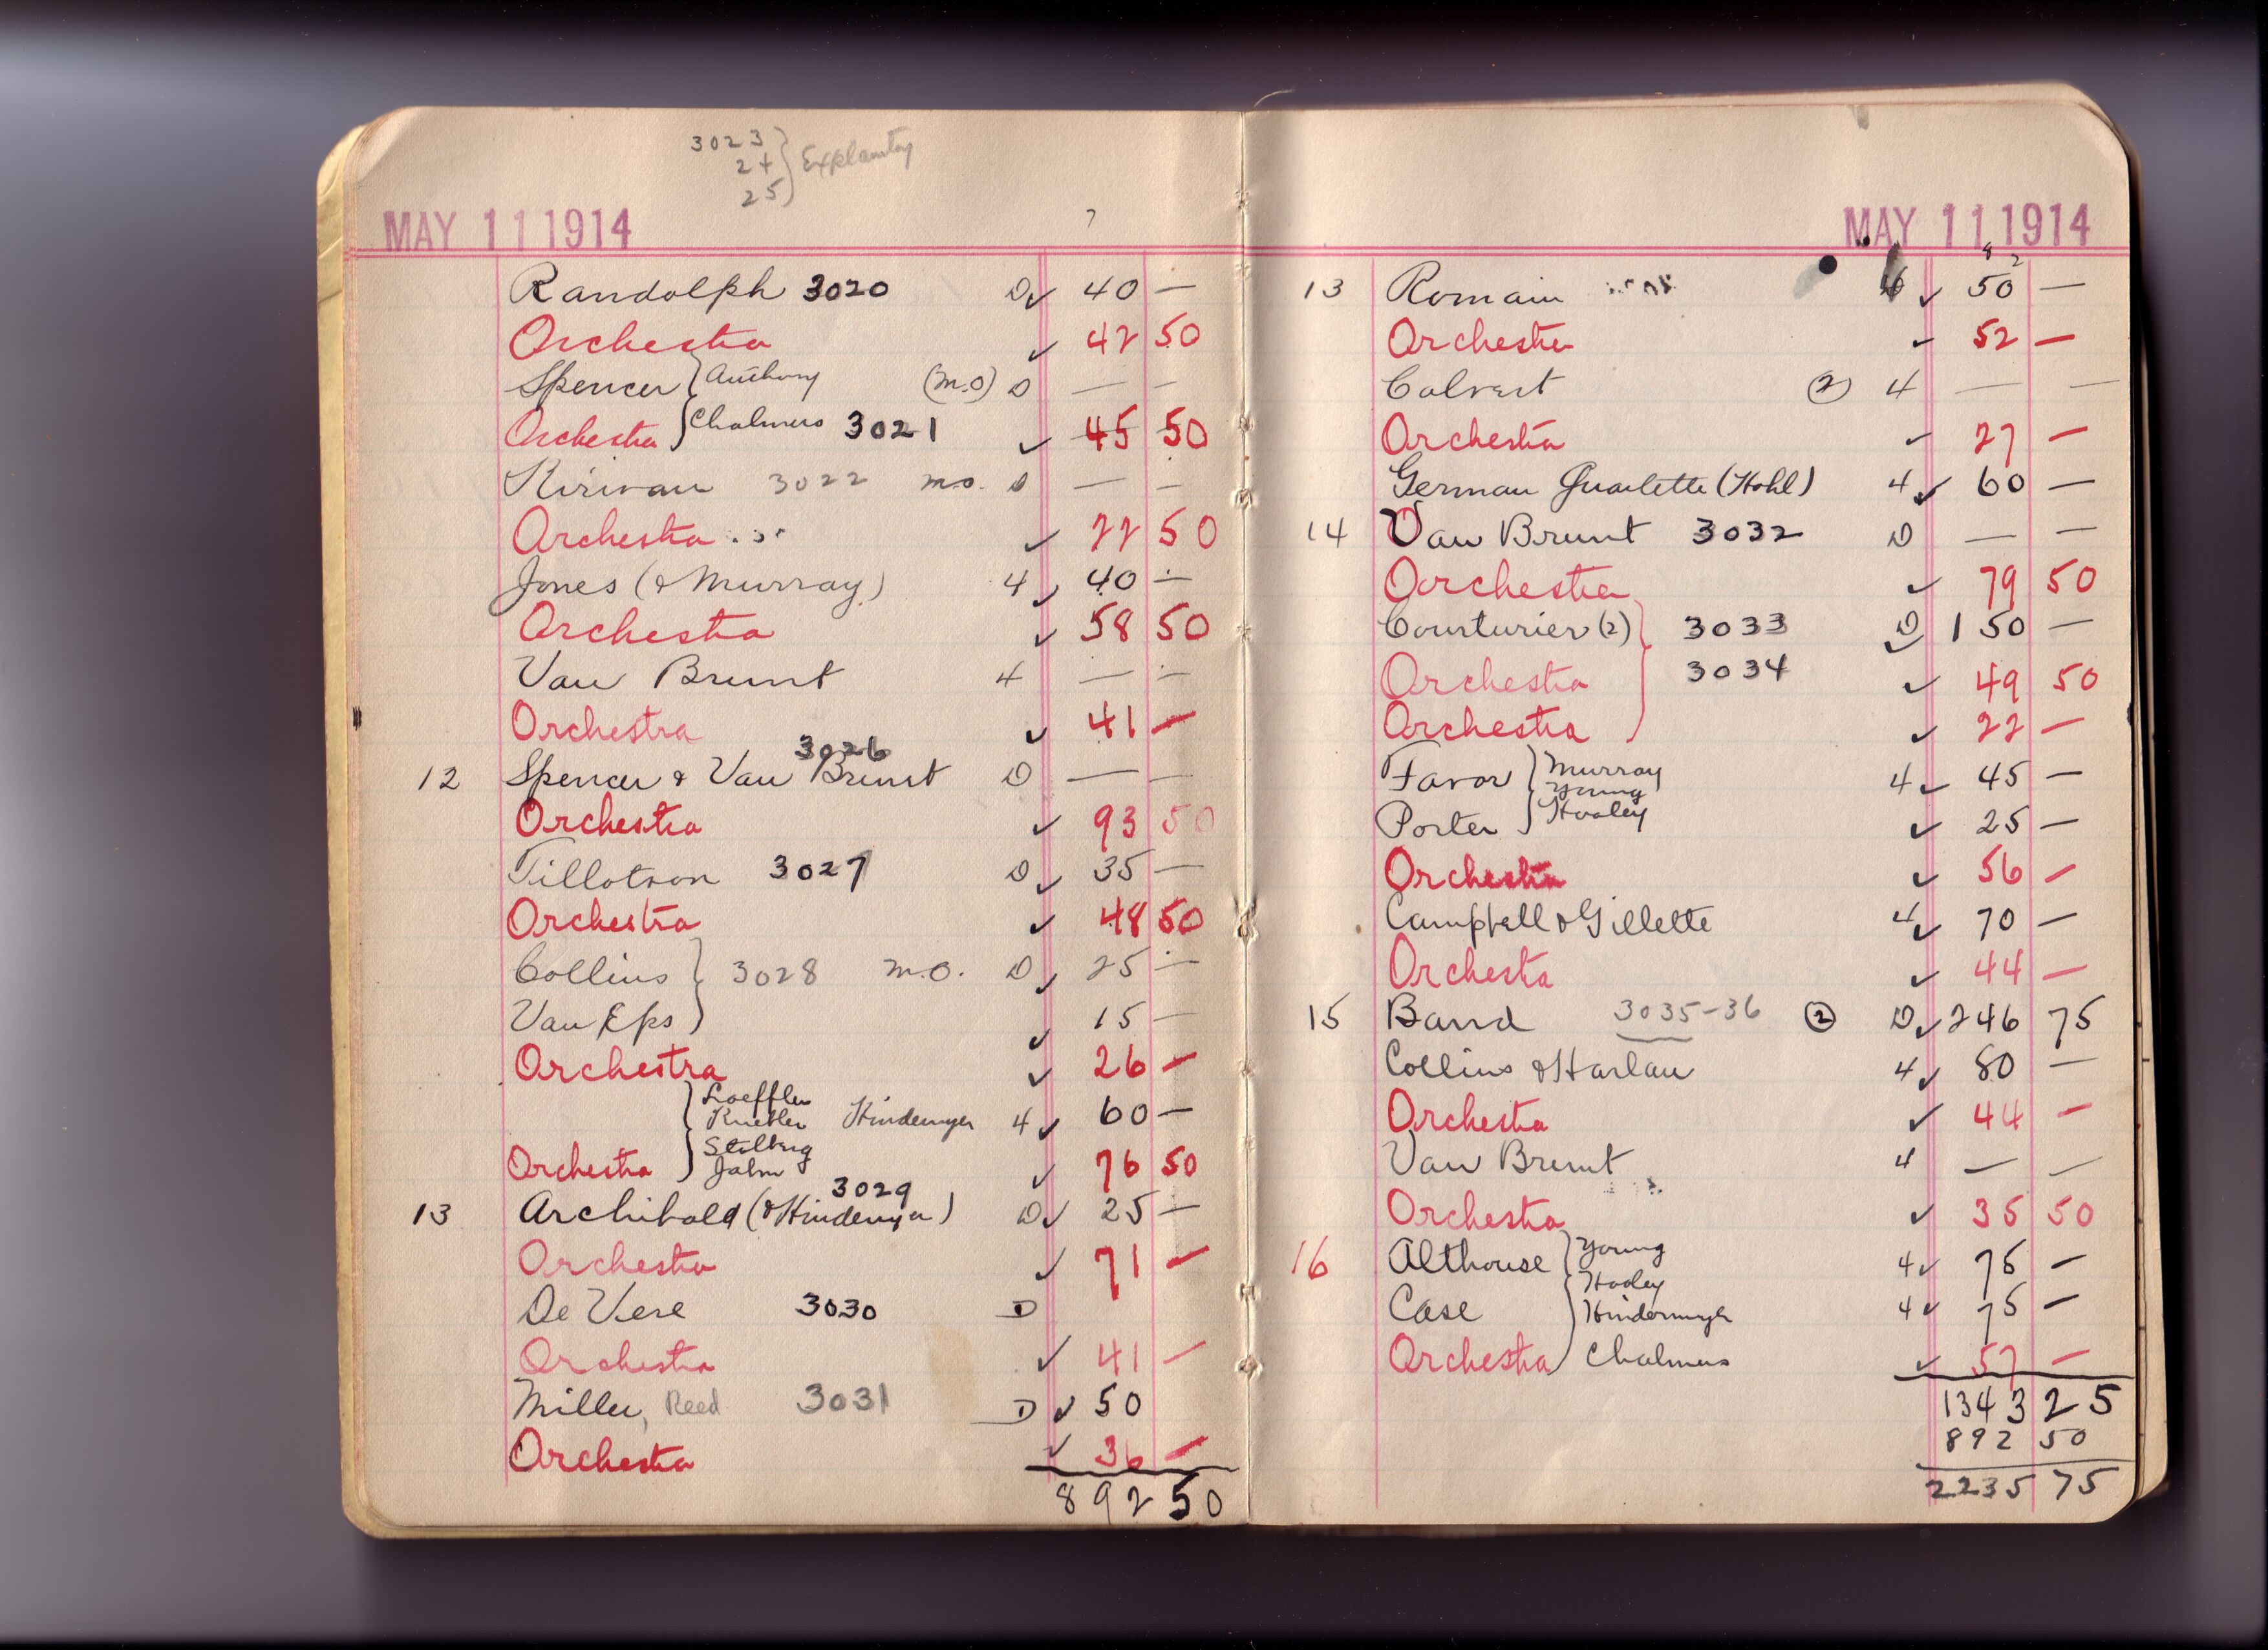 3023
24 } Explanatory
25
MAY 11 1914
Randolph 3020 D ✓ 40 —
Orchestra ✓ 42 50
Spencer } Anthony (M.O) D — —
Orchestra } Chalmers 3021 ✓ 45 50
Kirivan 3022 M.O. D — —
Orchestra ✓ 22 50
Jones (& Murray) 4 ✓ 40 —
Orchestra ✓ 58 50
Van Brunt 4 — —
Orchestra ✓ 41 —
3026
12 Spencer & Van Brunt D — —
Orchestra ✓ 93 50
Tillotson 3027 D ✓ 35 —
Orchestra ✓ 48 50
Collins } 3028 M.O. D ✓ 25 —
Van Eps } ✓ 15 —
Orchestra ✓ 26 —
Loeffler
Hindemyer 4 ✓ 60 —
Stolberg
Orchestra } Jahn ✓ 76 50
3029
13 Archibald (& Hindemyer) D ✓ 25 —
Orchestra ✓ 71 —
De Vere 3030 D
Orchestra ✓ 41 —
Miller, Reed 3031 D ✓ 50
Orchestra ✓ 36 —
892 50
MAY 11 1914
13 Romain 4 ✓ 50 —
Orchestra ✓ 52 —
Calvert (2) 4 — —
Orchestra ✓ 27 —
German Quartette (Hohl) 4 ✓ 60 —
14 Van Brunt 3032 D — —
Orchestra ✓ 79 50
Courturier (2) } 3033 D ✓ 150 —
Orchestra } 3034 ✓ 49 50
Orchestra } ✓ 22 —
Favor } Murray 4 ✓ 45 —
Young
Porter } Hooley ✓ 25 —
Orchestra ✓ 56 —
Campbell & Gillette 4 ✓ 70 —
Orchestra ✓ 44 —
15 Band 3035-36 (2) D ✓ 246 75
Collins & Harlan 4 ✓ 80 —
Orchestra ✓ 44 —
Van Brunt 4 — —
Orchestra ✓ 35 50
16 Althouse } Young 4 ✓ 75 —
Hooley
Case } Hindermyer 4 ✓ 75 —
Orchestra } Chalmers ✓ 57 —
1343 25
892 50
2235 75